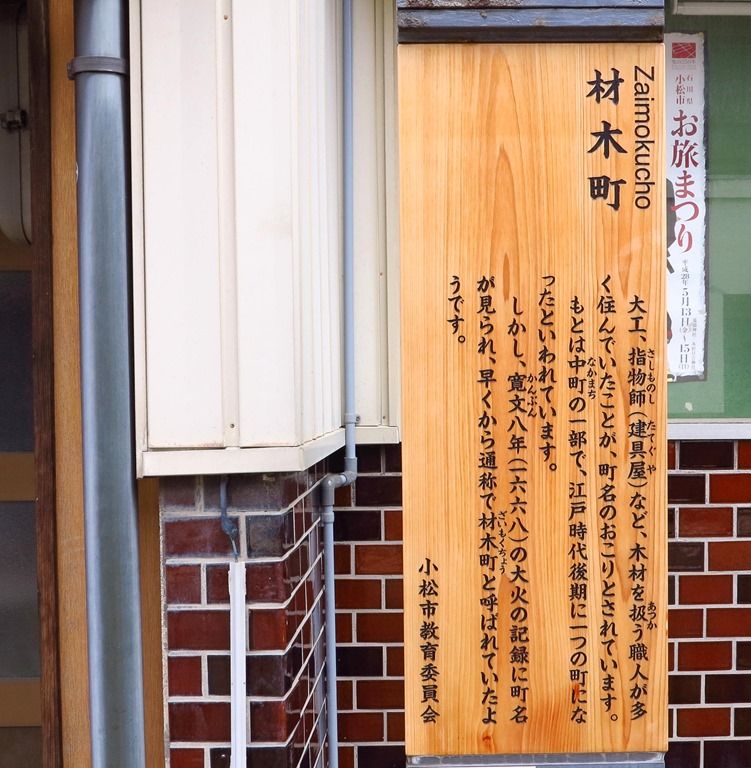 Zaimokucho
材木町
大工、指物師(建具屋)など、木材を扱う職人が多
く住んでいたことが、町名のおこりとされています。
もとは中町の一部で、江戸時代後期に一つの町にな
ったといわれています。
しかし、寛文八年(一六六八)の大火の記録に町名
が見られ、早くから通称で材木町と呼ばれていたよ
うです。
小松市教育委員会
さしものし
たてぐや
あつか
なかまち
かんぶん
ざいもくちょう
石川県
小松市
お旅まつり
平成28年5月13日(金)~15日(日)